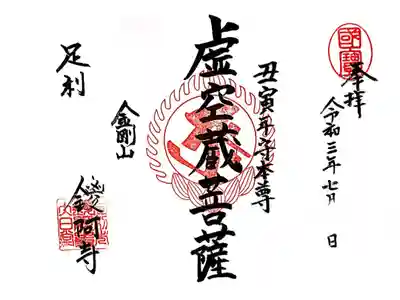 國寶
奉拝
令和三年七月 日
丑寅年守本尊
虚空蔵菩薩
金剛山
鑁阿寺
足利